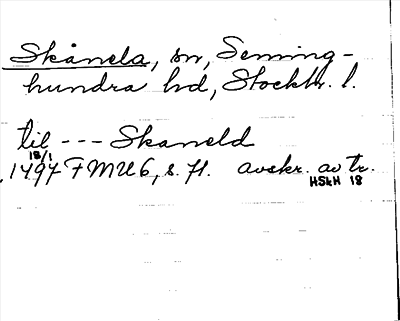 Skånela, sn, Seming-
hundra hd, Stockh. l.
til --- Skaneld
18/1
1497 FMU 6, s. 71. avskr. av tr.
HSkH 18